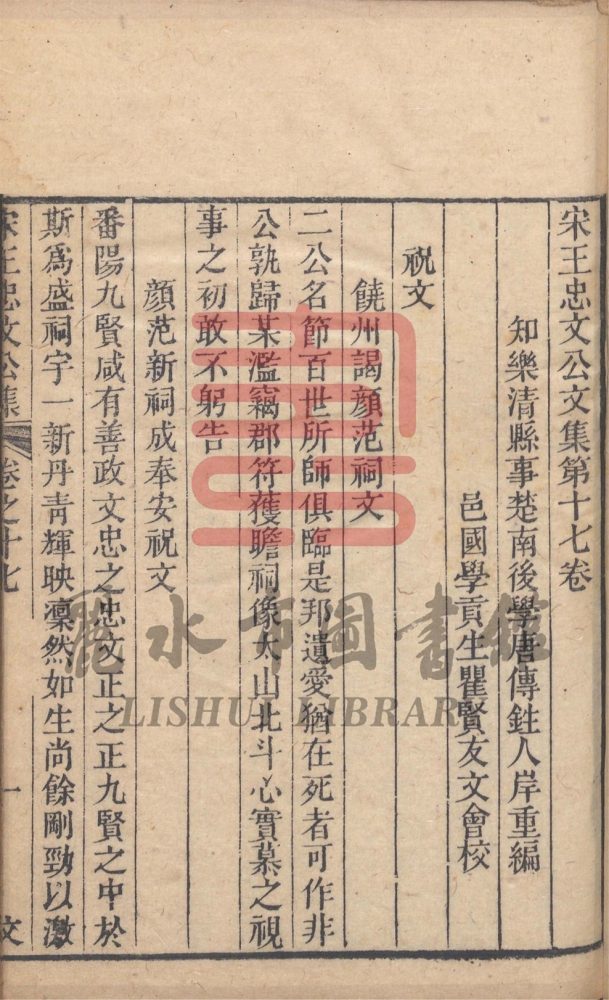 宋王忠文公文集第十七卷
知樂清縣事楚南後學唐傳鉎人岸重編
邑國學貢生瞿賢友文會校
祝文
饒州謁顏范祠文
二公名節百世所師俱臨是邦遺愛猶在死者可作非
公孰歸某濫竊郡符獲瞻祠像太山北斗心實慕之視
事之初敢不躬告
顏范新祠成奉安祝文
番陽九賢咸有善政文忠之忠文正之正九賢之中於
斯爲盛祠宇一新丹青輝映凜然如生尚餘剛勁以激
宋王忠文公集 卷之十七 一 文
麗水市圖書館
LISHUI LIBRARY